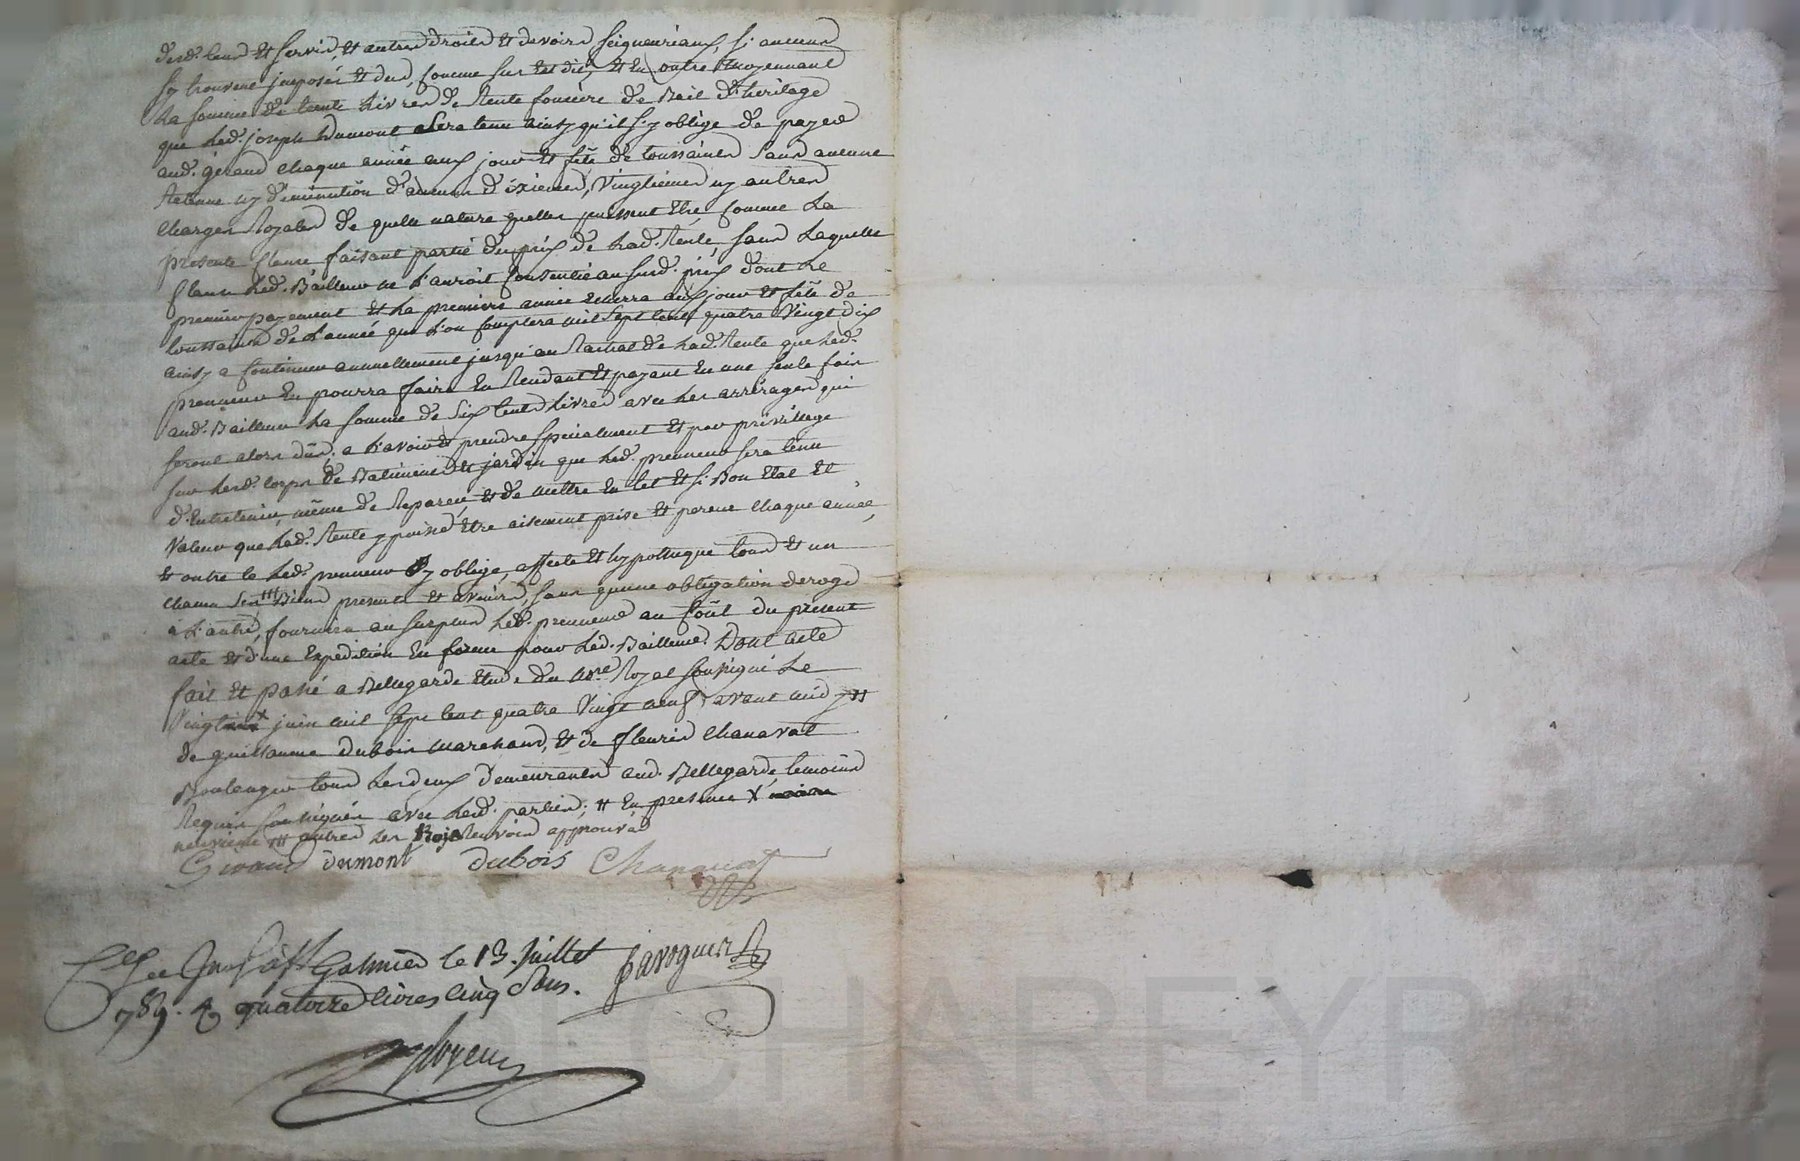 desd. cens et servis, et autres droits et devoirs seigneuriaux, si aucuns
s'y trouvent imposés et dus, comme sus est dit, et en outre moyennant
la somme de trente livres de rente foncière de Bail d'héritage
que led. joseph Dumont sera tenu ainsy qu'il s'y oblige de payer
aud. géraud chaque année aux jour et fête de toussaints sans aucune
retenue ny diminution d'aucuns dixiemes, vingtiemes ny autres
charges Royales de quelle nature quelles puissent être, comme la
presente clause faisant partie du prix de lad. Rente, sans laquelle
clause led. Bailleur ne l'auroit consentie au susd. prix dont le
premier payement et la premiere année echerra aux jour et fête de
toussaints de l'année que l'on comptera mil sept cent quatre vingt dix
ainsy a continuer annuellement jusqu'au Rachat de lad. Rente que led.
preneur en pourra faire en Rendant et payant en une seule fois
aud. Bailleur la somme de six cents livres avec les arrérages qui
seront alors dûs; a l'avoir et prendre specialement et par privillege
sur lesd. corps de Batiments et jardin que led. preneur sera tenu
d'Entretenir, même de Reparer, et de mettre en tel et si Bon Etat et
Valeur que lad. Rente y puisse être aisement prise et percue chaque année,
et outre le led. preneur y oblige, affecte et hypotheque tous et un
chacun ses Biens presents et avenirs, sans qu'une obligation deroge
à l'autre, fournira au surplus led. preneur au Coût du présent
acte et d'une Expédition en forme pour led. Bailleur. Dont acte
fait et passé a Bellegarde Etude du Nre Royal soussigné le
Vingt X juin mil sept cent quatre Vingt neuf avant midy #
de guillaume dubois marchand, et de fleuris chanavat
Boulanger tous les deux demeurants aud. Bellegarde, temoins
Requis soussignés avec lesd. parties; # En presence X
neuvieme # autres les Renvois approuvés
Giraud dumont dubois Chanavat
Cllé Insé à St Galmier le 13. Juillet
789. quatorze livres cinq sous. Javogues